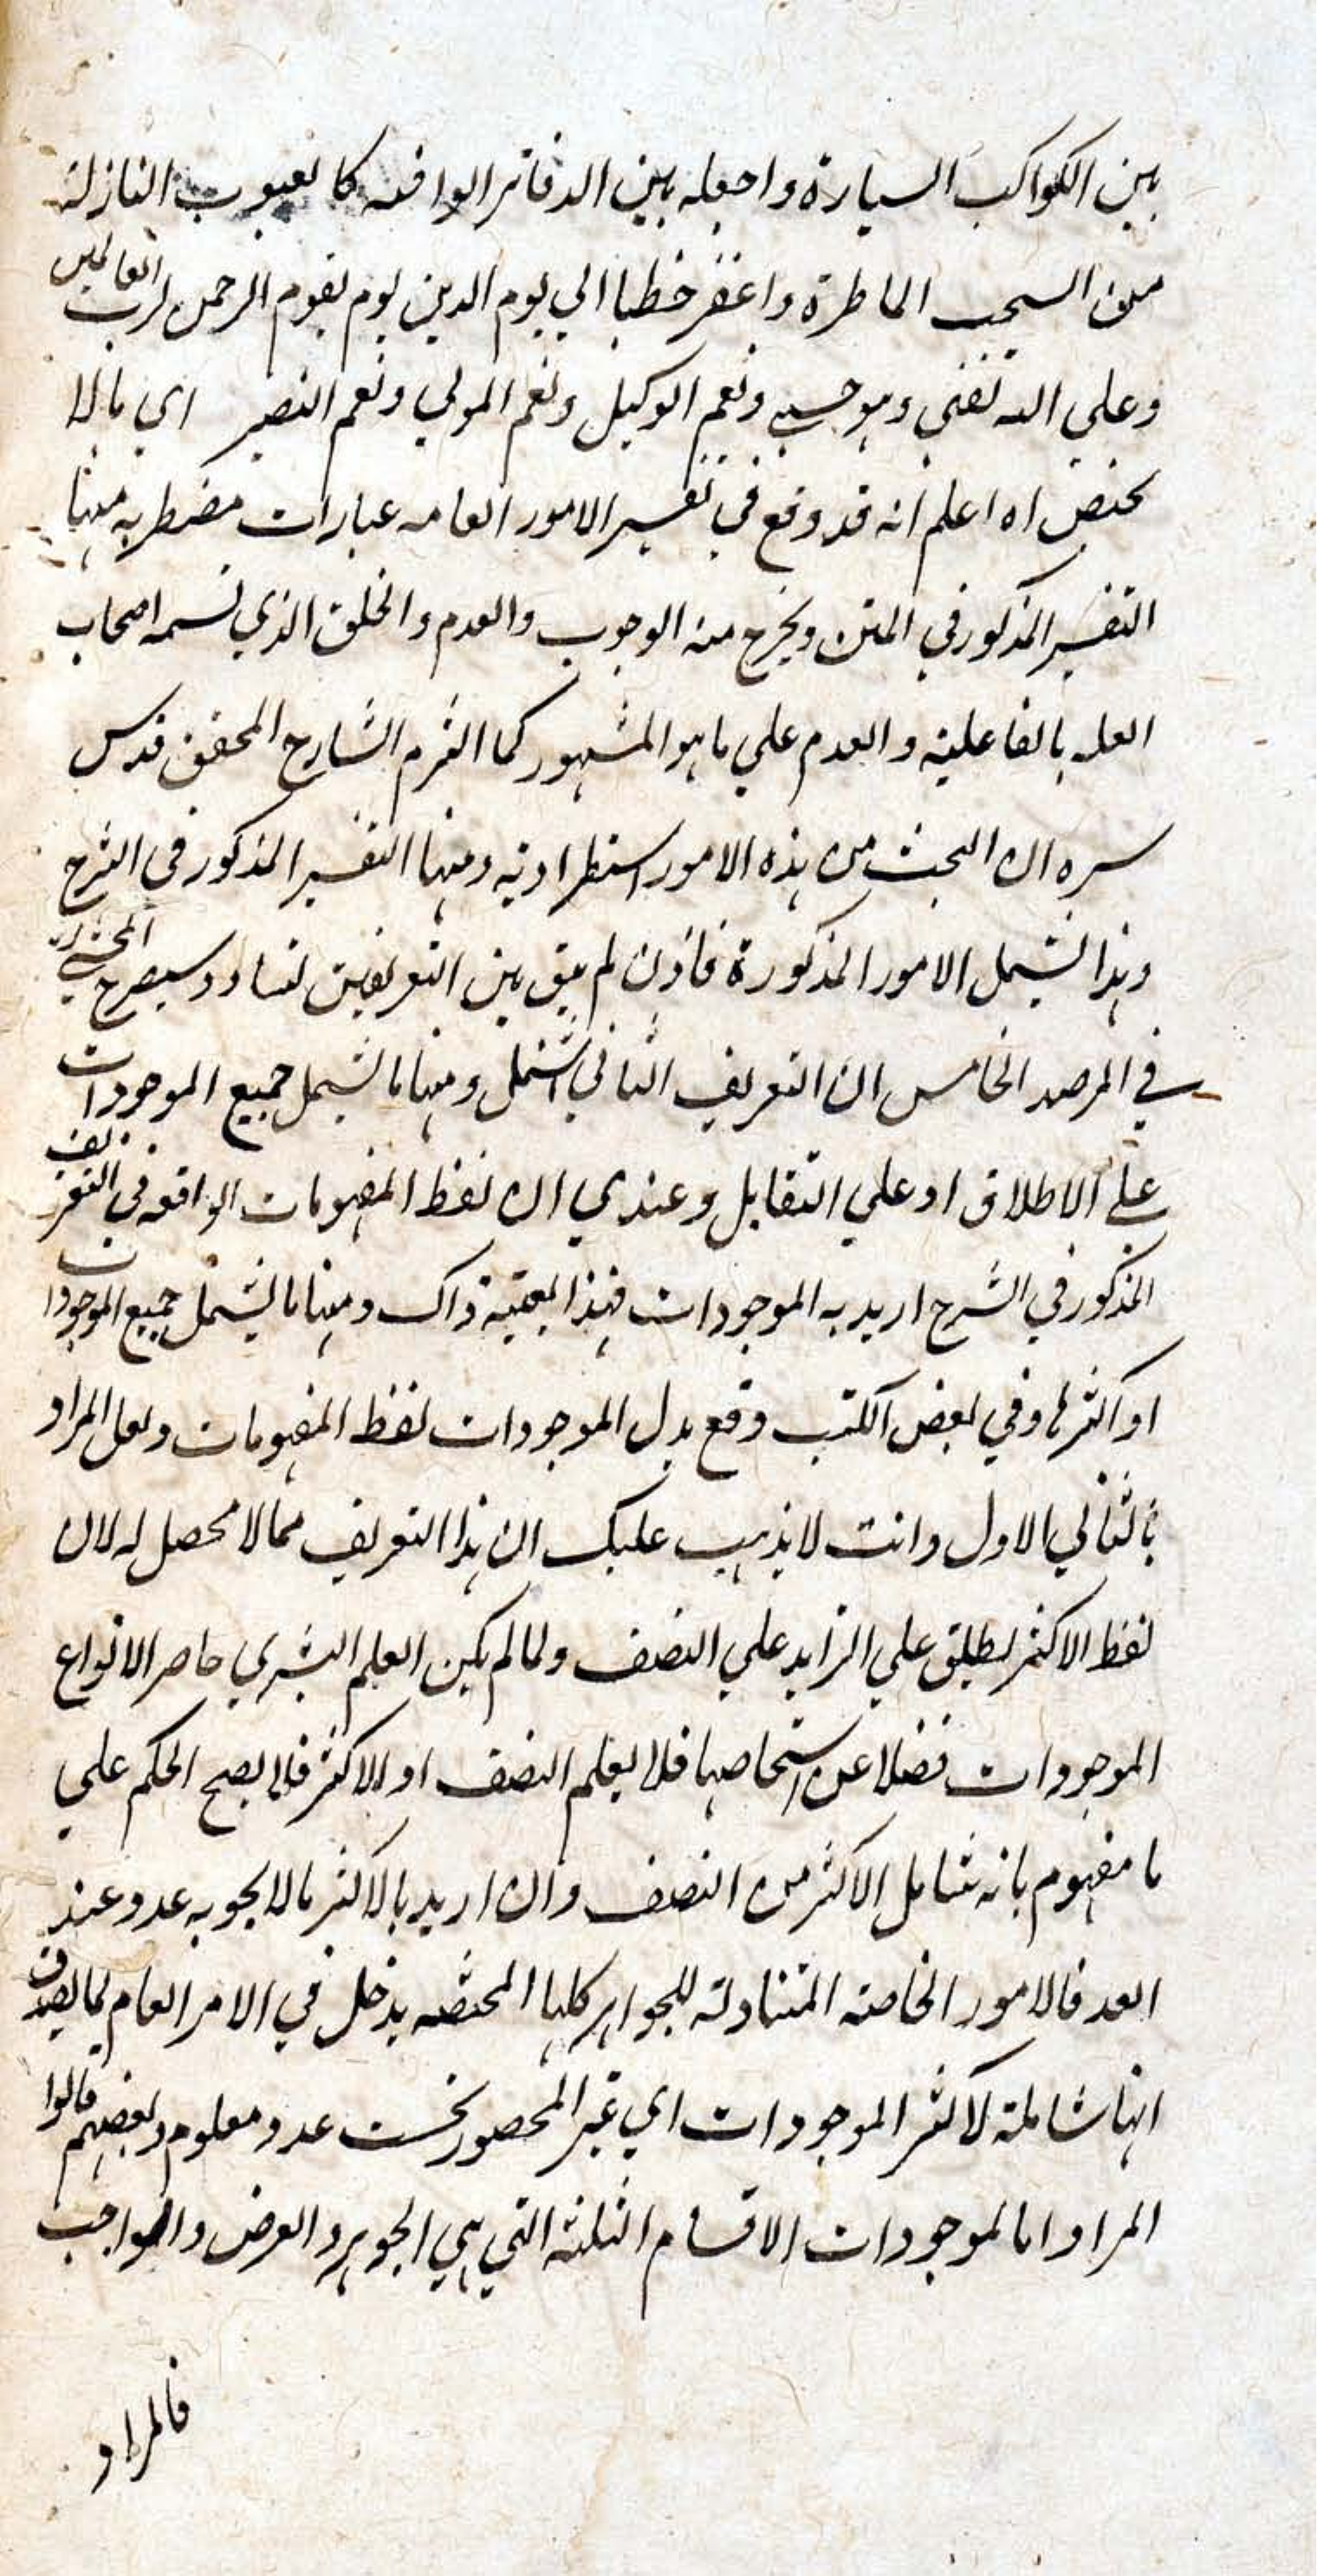 بين الكواكب السيارة واجعله بين الدفاتر الوافيه كالعيوب النازلة
من السحب الماطرة واغفر خطايا الي يوم الدين يوم يقوم الرحمن لرب العالمين
وعلي الله ثقتي وهو حسبي ونعم الوكيل ونعم المولي ونعم النصير اي مالا
يختص اه اعلم انه قد وقع في تفسير الامور العامه عبارات مضطربه منها
التفسير المذكور في المتن ويخرج منه الوجوب والعدم والخلق الذي تسمه اصحاب
العله بالفاعلية والعدم علي ما هو المشهور كما التزم الشارح المحقق قدس
سره ان البحث من هذه الامور استطرادية ومنها التفسير المذكور في الشرح
وهذا يشمل الامور المذكورة فاذن لم يبق بين التعريفين تساو وسيصرح المحشي
في المرصد الخامس ان التعريف الثاني اشمل ومنها ما يشمل جميع الموجودات
علي الاطلاق او علي التقابل وعندي ان لفظ المفهومات الواقعه في التعريف
المذكور في الشرح اريد به الموجودات فهذا بعينه ذاك ومنها ما يشمل جميع الموجودات
او اكثرها وفي بعض الكتب وقع بدل الموجودات لفظ المفهومات ولعل المراد
بالثاني الاول وانت لا يذهب عليك ان هذا التعريف مما لا محصل له لان
لفظ الاكثر يطلق علي الزايد علي النصف ولما لم يكن العلم البشري حاصر الانواع
الموجودات فضلا عن اشخاصها فلا يعلم النصف او الاكثر فلا يصح الحكم علي
ما مفهوم بانه شامل الاكثر من النصف وان اريد بالاكثر مالا يحويه عدد عند
العد فالامور الخاصه المتناولة للجواهر كلها المختصه يدخل في الامر العام لما يصدق
انها شاملة لاكثر الموجودات اي غير المحصور تحت عدد معلوم وبعضهم قالوا
المراد امالموجودات الاقسام الثلثه التي هي الجوهر والعرض والواجب
فالمراد